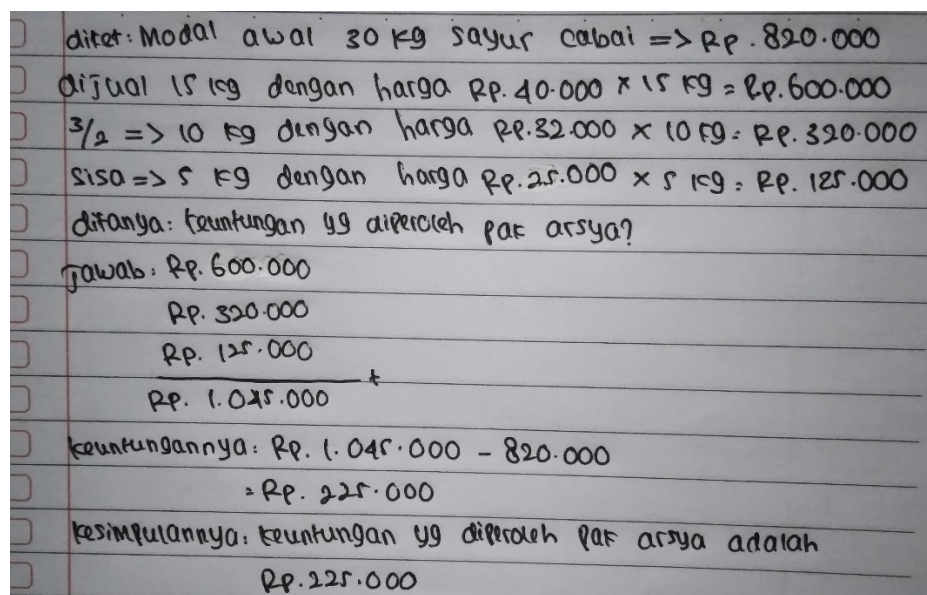 diket: Modal awal 30 kg sayur cabai => Rp. 820.000
dijual 15 kg dengan harga Rp. 40.000 x 15 kg = Rp. 600.000
3/2 => 10 kg dengan harga Rp. 32.000 x 10 kg = Rp. 320.000
sisa => 5 kg dengan harga Rp. 25.000 x 5 kg = Rp. 125.000
ditanya: keuntungan yg diperoleh pak arsya?
Jawab: Rp. 600.000
Rp. 320.000
Rp. 125.000
+
Rp. 1.045.000
keuntungannya: Rp. 1.045.000 - 820.000
= Rp. 225.000
kesimpulannya: keuntungan yg diperoleh pak arsya adalah
Rp. 225.000